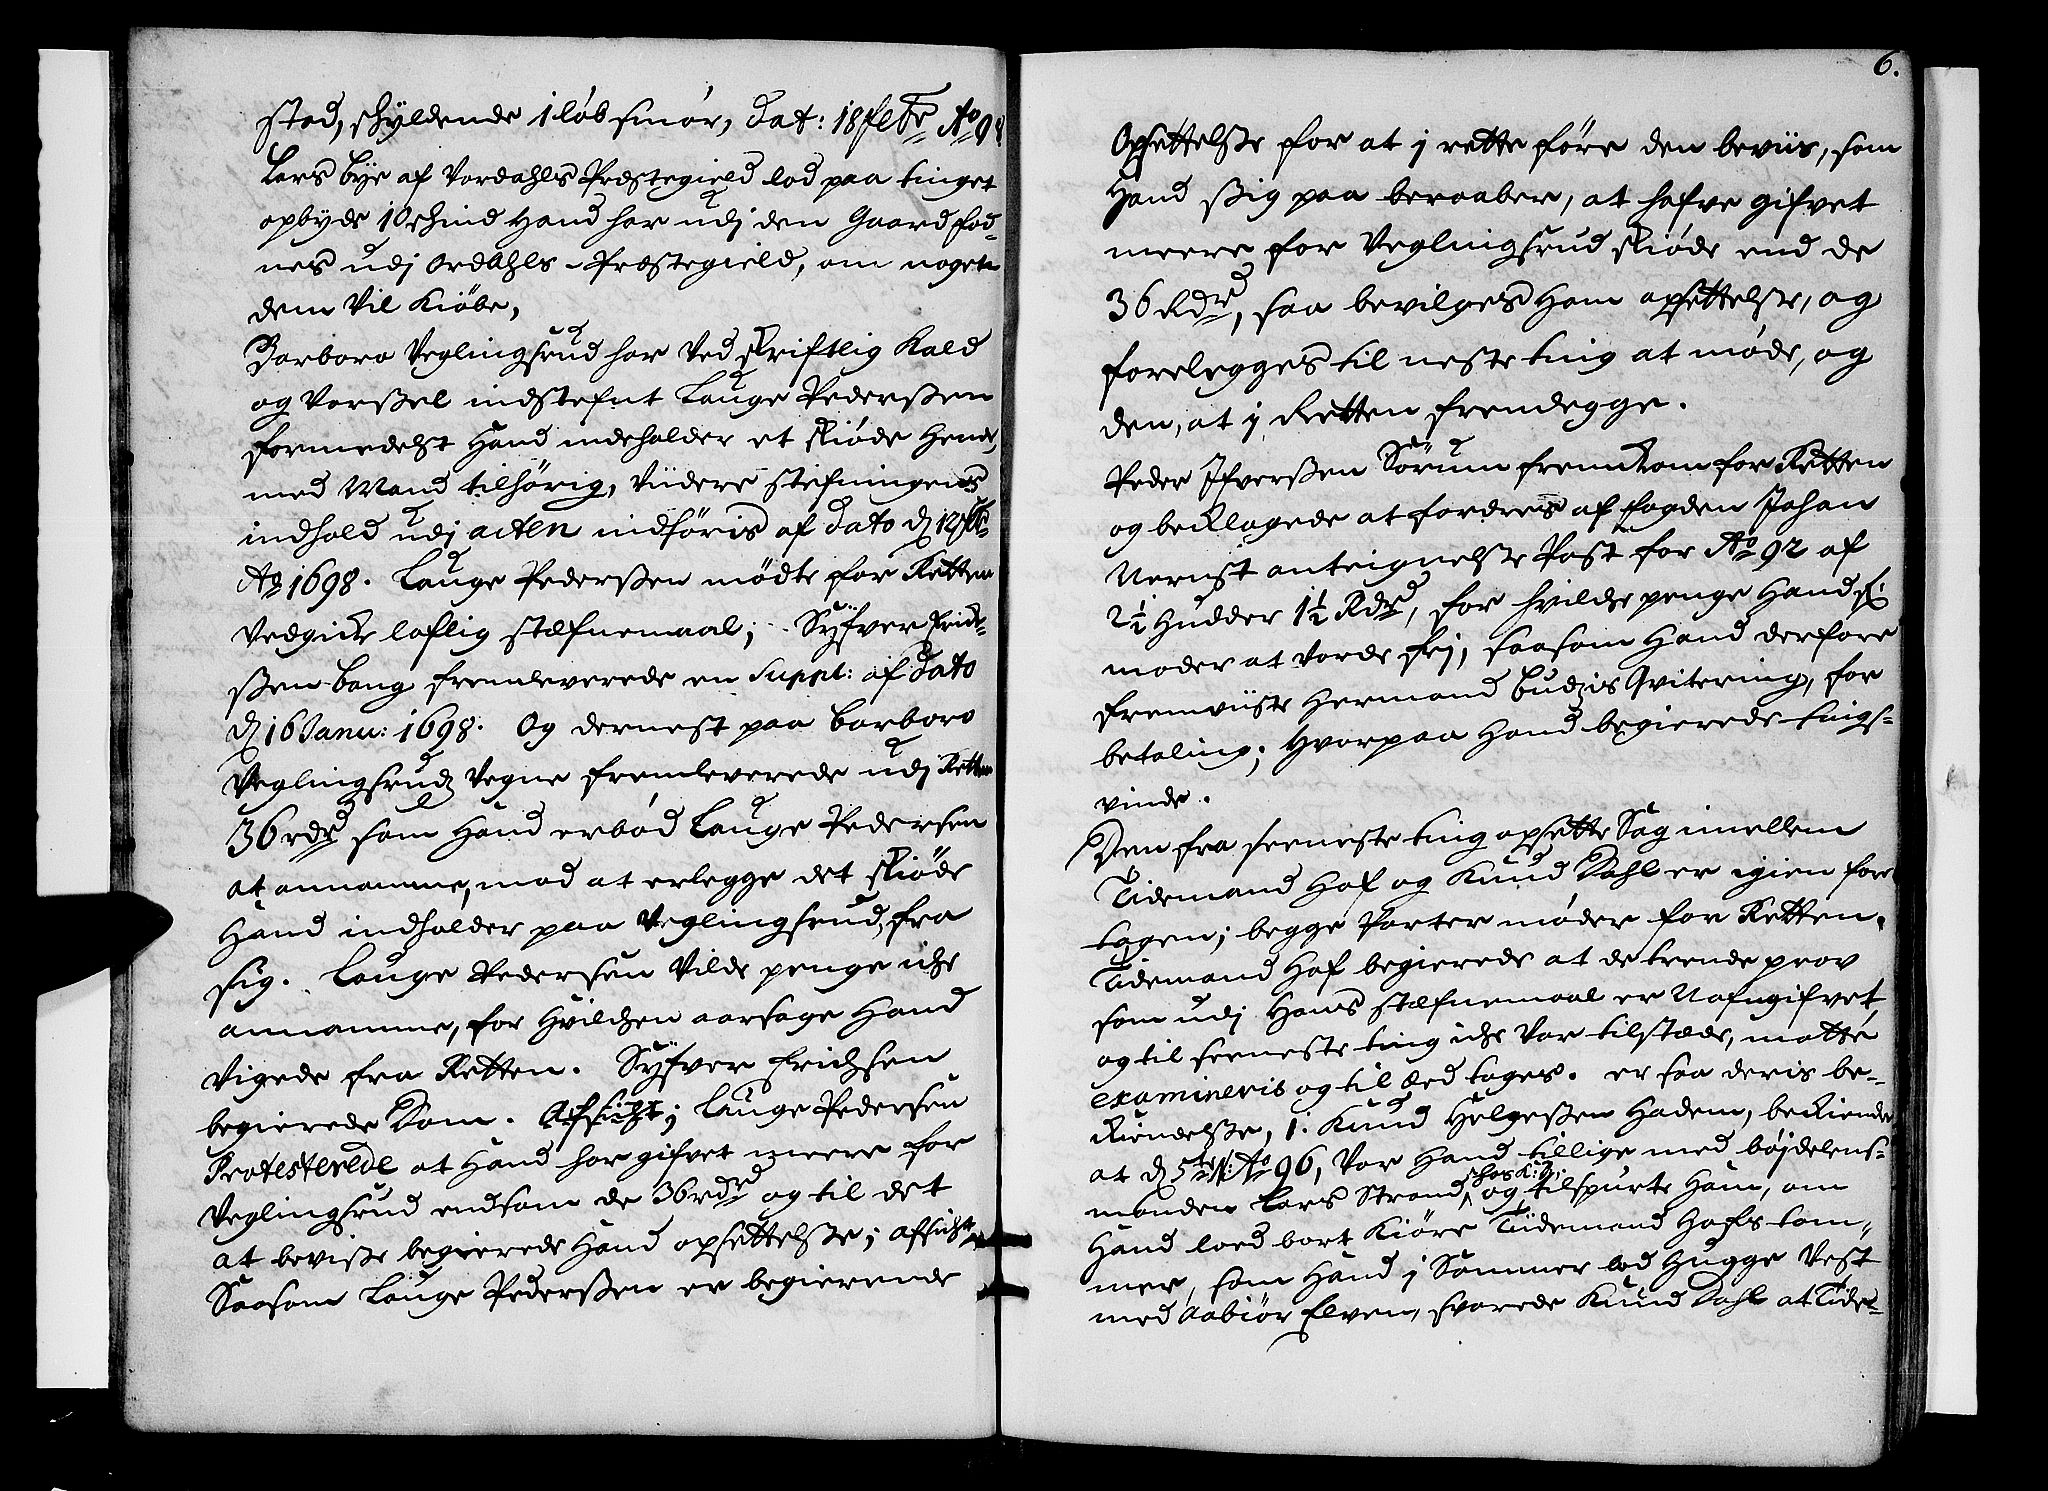 stad, skyldende 1 löb smör, Dat: 18 febr Ao 98
Lars bÿe af Vordahls Præstegield lod paa tinget
opbyde 10 skind hand har udj den Gaard fod-
nes udj Ordahls Præstegield, om nogen
dem vil kiöbe,
Barbara Veglingsrud har ved skriftlig kald
og varßel indstefnt Lauge Pederßen
formedelst hand indeholder et skiøde hende,
med Mand tilhörig, viidere stefningens
indhold udj acten indföris af dato d 12
Ao 1698. Lauge Pederßen mødte for Retten
vedgick lovlig stæfnemaal; Syfver Erich-
ßen bang fremleverede en Suppl: af Dato
d 16 Janu: 1698. Og dernest paa barbara
Veglingsrudz vegne fremleverede udj Retten
36 rdr som hand erbød Lauge Pedersen
at annamme, mod at erlegge det skiöde
hand indholder paa Veglingsrud, fra
sig. Lauge Pedersen vilde penge iche
annamme, for hvilchen aarsage hand
vigede fra Retten. Syfver Erichsen
begierede Dom. Afsicht; Lauge Pedersen
Protesterede at hand har gifvet meere for
Veglingsrud endsom de 36 rdr og til det
at beviße begierede hand opsettelße; afsicht
Saasom Lauge Pederßen er begierende
6.
Opsettelße for at j rette føre den beviis, som
hand ßig paa beraaber, at hafve gifvet
meere for Veglingsrud skiøde end de
36 Rdr, saa bevilges ham opsettelse, og
forelegges til neste ting at møde, og
den, at j Retten fremlegge.
Peder Ifverßen Sörum fremkom for Retten
og beklagede at fordres af fogden Johan
Vernst antegnelse Post for Ao 92 af
2½ hudder 1½ Rdr, for hvilche penge hand
moder at vorde frj, saasom hand derfore
fremviiste Hermand budzis qvitering, for
betaling; hvorpaa hand begierede tings-
vinde.
Den fra seeneste ting opsette Sag imellem
Tidemand Hof og Knud Dahl er igien fore
tagen; begge Parter møder for Retten.
Tidemand Hof begierede at de trende prov
som udj hans stæfnemaal er Nafngifvet,
og til seeneste ting iche var tilstæde, matte
examineris og til Æed tages. er saa deris be-
kiendelße, 1. Knud Helgeßen Hadem, bekiender
at d 5te Ao 96, var hand tillige med böjdelens-
manden Lars Strand, hos K: D: og tilspurte ham, om
hand loed bort kiöre Tidemand Hofs töm-
mer, som hand j Sommer lod hugge vest
med Aabiör Elven, svarede Knud Dahl at Tide-